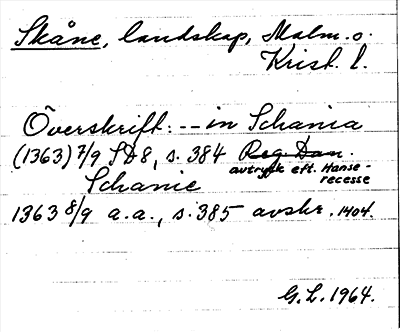 Skåne, landskap, Malm. o.
Krist. l.
Överskrift: -- in Schania
(1363) 7/9 SD 8, s. 384 Reg. Dan.
avtryck eft. Hanse-
recesse
Schanie
1363 8/9 a.a., s. 385 avskr. 1404.
G.L. 1964.